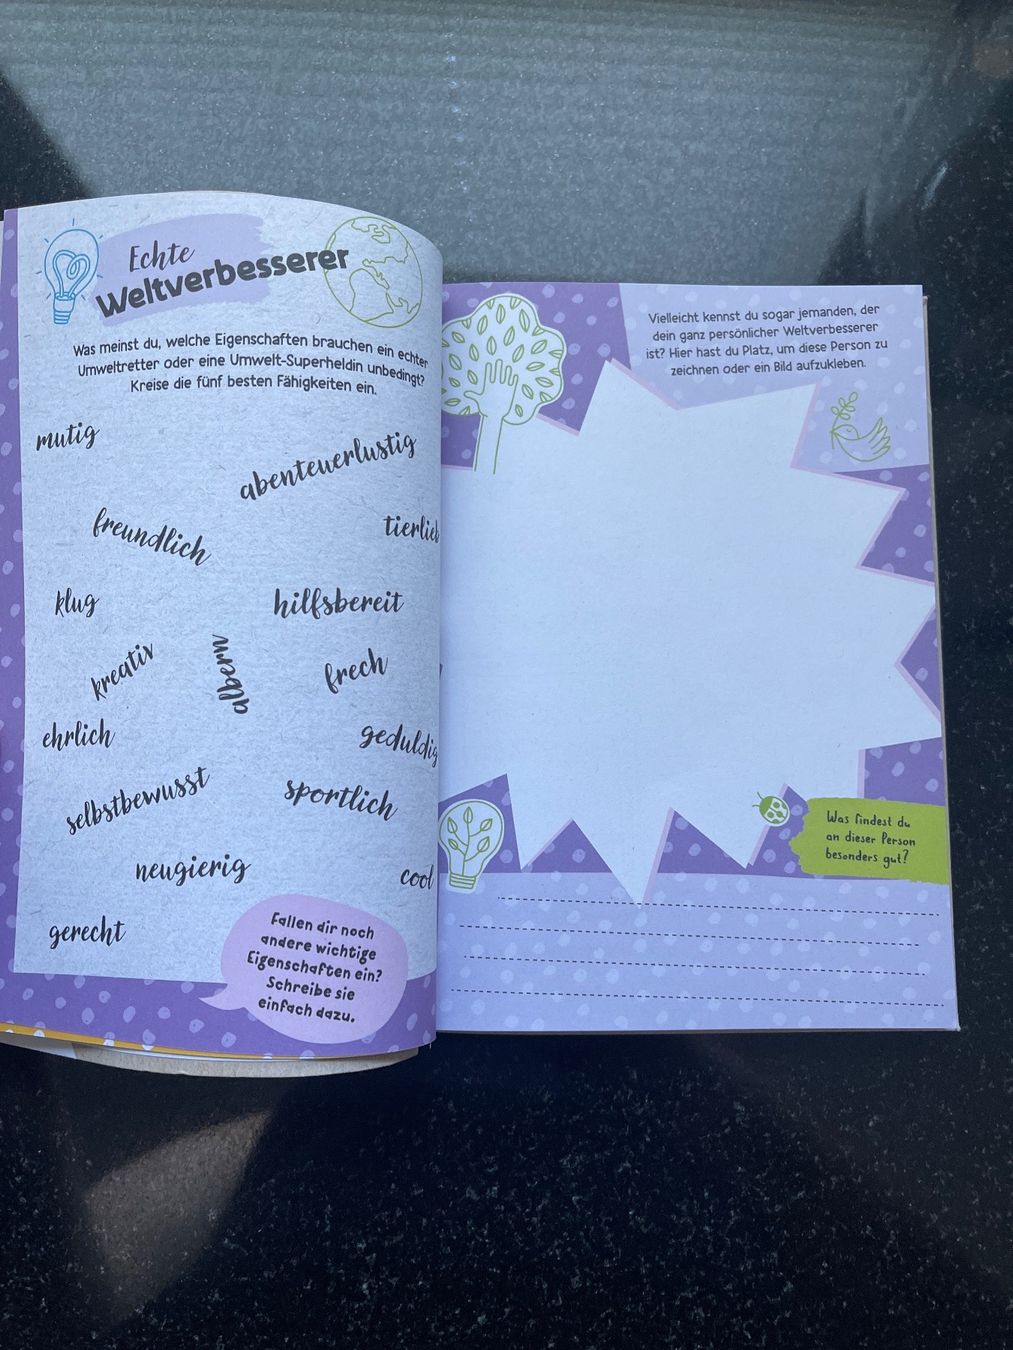 Echte
Weltverbesserer
Was meinst du, welche Eigenschaften brauchen ein echter
Umweltretter oder eine Umwelt-Superheldin unbedingt?
Kreise die fünf besten Fähigkeiten ein.
mutig
abenteuerlustig
freundlich
tierlieb
klug
hilfsbereit
kreativ
albern
frech
ehrlich
geduldig
selbstbewusst
sportlich
neugierig
cool
gerecht
Fallen dir noch
andere wichtige
Eigenschaften ein?
Schreibe sie
einfach dazu.
Vielleicht kennst du sogar jemanden, der
dein ganz persönlicher Weltverbesserer
ist? Hier hast du Platz, um diese Person zu
zeichnen oder ein Bild aufzukleben.
Was findest du
an dieser Person
besonders gut?